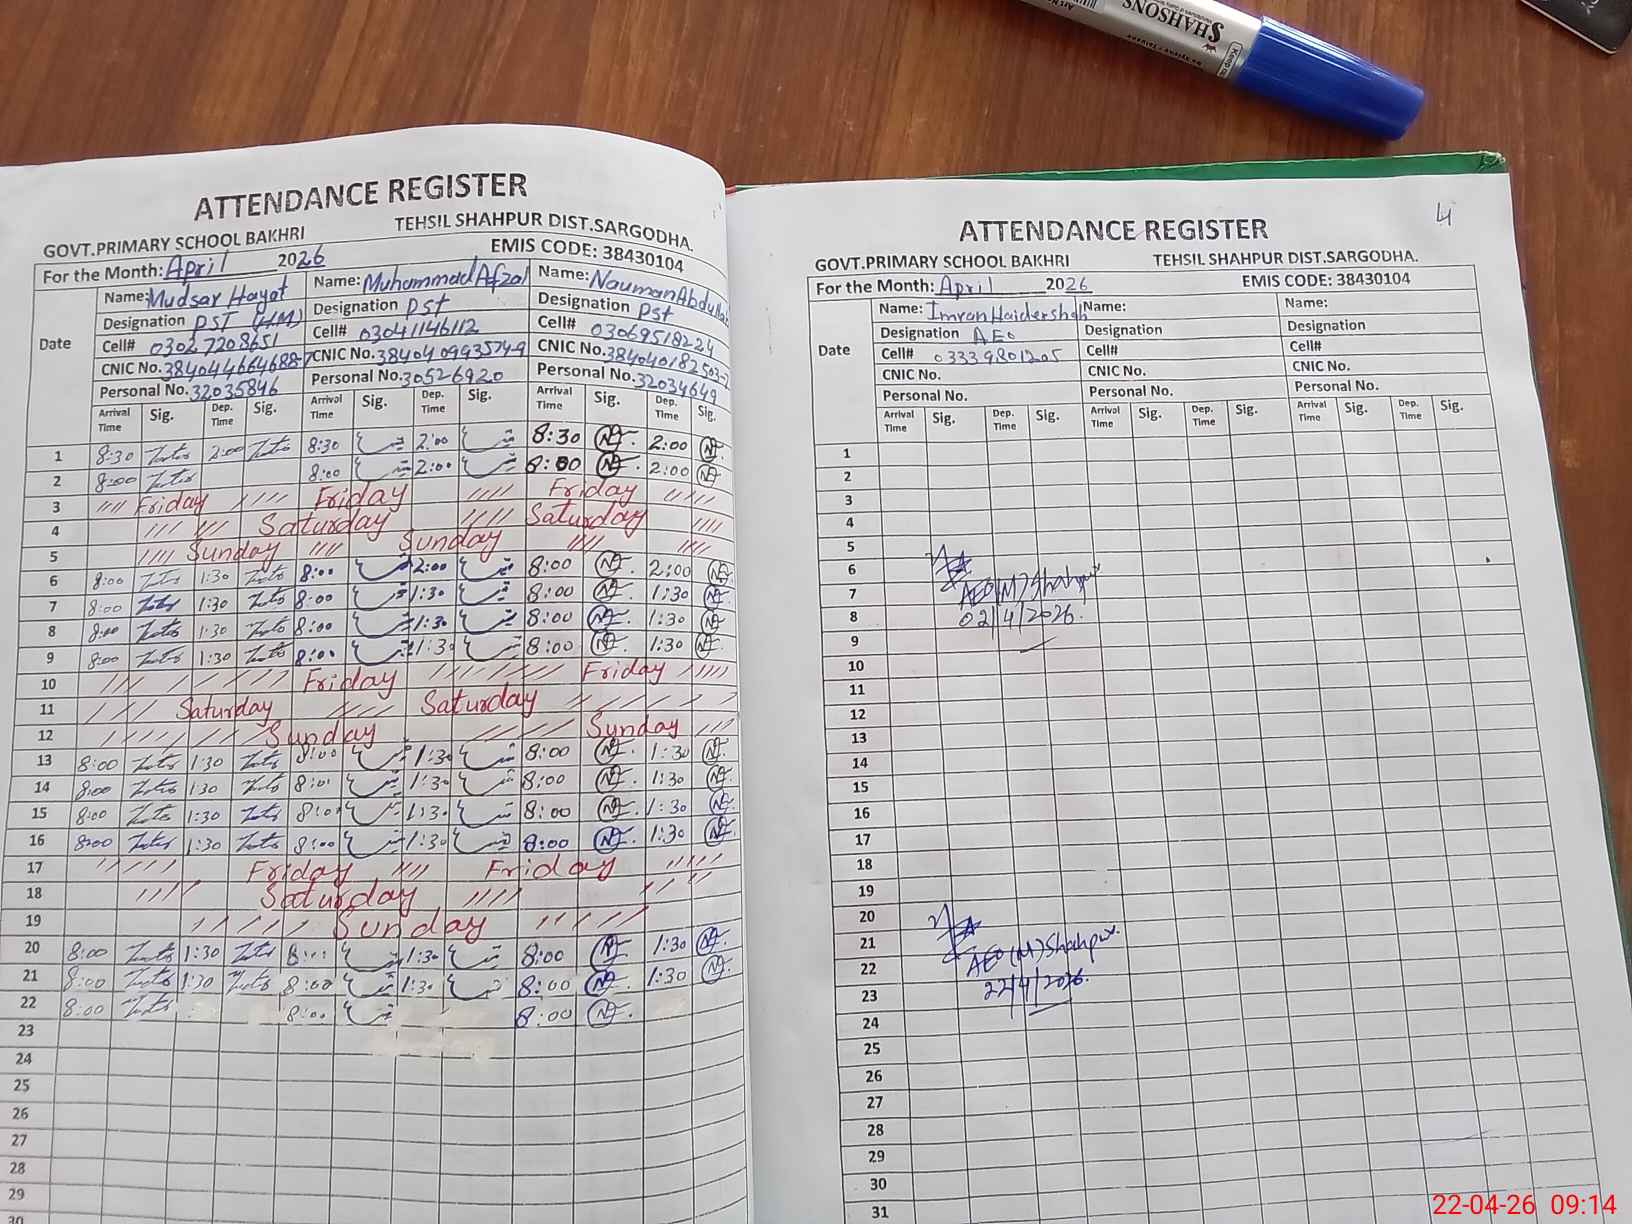 SHAHSONS
ATTENDANCE REGISTER
GOVT.PRIMARY SCHOOL BAKHRI TEHSIL SHAHPUR DIST.SARGODHA.
For the Month: April 2026 EMIS CODE: 38430104
Date
Name: Mudsar Hayat Name: Muhammad Afzal Name: Nauman Abdullah
Designation PST (HM) Designation PST Designation PSt
Cell# 03027208651 Cell# 03041146112 Cell# 0306951822
CNIC No. CNIC No. CNIC No.
Personal No. 32035846 Personal No. 30526920 Personal No. 32034649
Arrival Time Sig. Dep. Time Sig. Arrival Time Sig. Dep. Time Sig. Arrival Time Sig. Dep. Time Sig.
1 8:30 2:00 8:30 2:00 8:30 2:00
2 8:00 8:00 2:00 8:00 2:00
3 Friday Friday Friday
4 Saturday Saturday
5 Sunday Sunday
6 8:00 1:30 8:00 2:00 8:00 2:00
7 8:00 1:30 8:00 1:30 8:00 1:30
8 8:00 1:30 8:00 1:30 8:00 1:30
9 8:00 1:30 8:00 1:30 8:00 1:30
10 Friday Friday
11 Saturday Saturday
12 Sunday Sunday
13 8:00 1:30 8:00 1:30 8:00 1:30
14 8:00 1:30 8:00 1:30 8:00 1:30
15 8:00 1:30 8:00 1:30 8:00 1:30
16 8:00 1:30 8:00 1:30 8:00 1:30
17 Friday Friday
18 Saturday
19 Sunday
20 8:00 1:30 8:00 1:30 8:00 1:30
21 8:00 1:30 8:00 1:30 8:00 1:30
22 8:00 8:00 8:00
23
24
25
26
27
28
29
30
4
ATTENDANCE REGISTER
GOVT.PRIMARY SCHOOL BAKHRI TEHSIL SHAHPUR DIST.SARGODHA.
For the Month: April 2026 EMIS CODE: 38430104
Date
Name: Imran Haidershah Name: Name:
Designation AEO Designation Designation
Cell# 03339801205 Cell# Cell#
CNIC No. CNIC No. CNIC No.
Personal No. Personal No. Personal No.
Arrival Time Sig. Dep. Time Sig. Arrival Time Sig. Dep. Time Sig. Arrival Time Sig. Dep. Time Sig.
1
2
3
4
5
6
7 AEO(M)Shahpur
8 02/4/2026.
9
10
11
12
13
14
15
16
17
18
19
20
21 AEO(M)Shahpur.
22 22/4/2026.
23
24
25
26
27
28
29
30
31
22-04-26 09:14